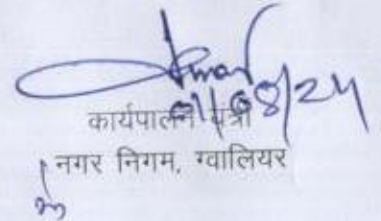 01/08/24
कार्यपालन यंत्री
नगर निगम, ग्वालियर